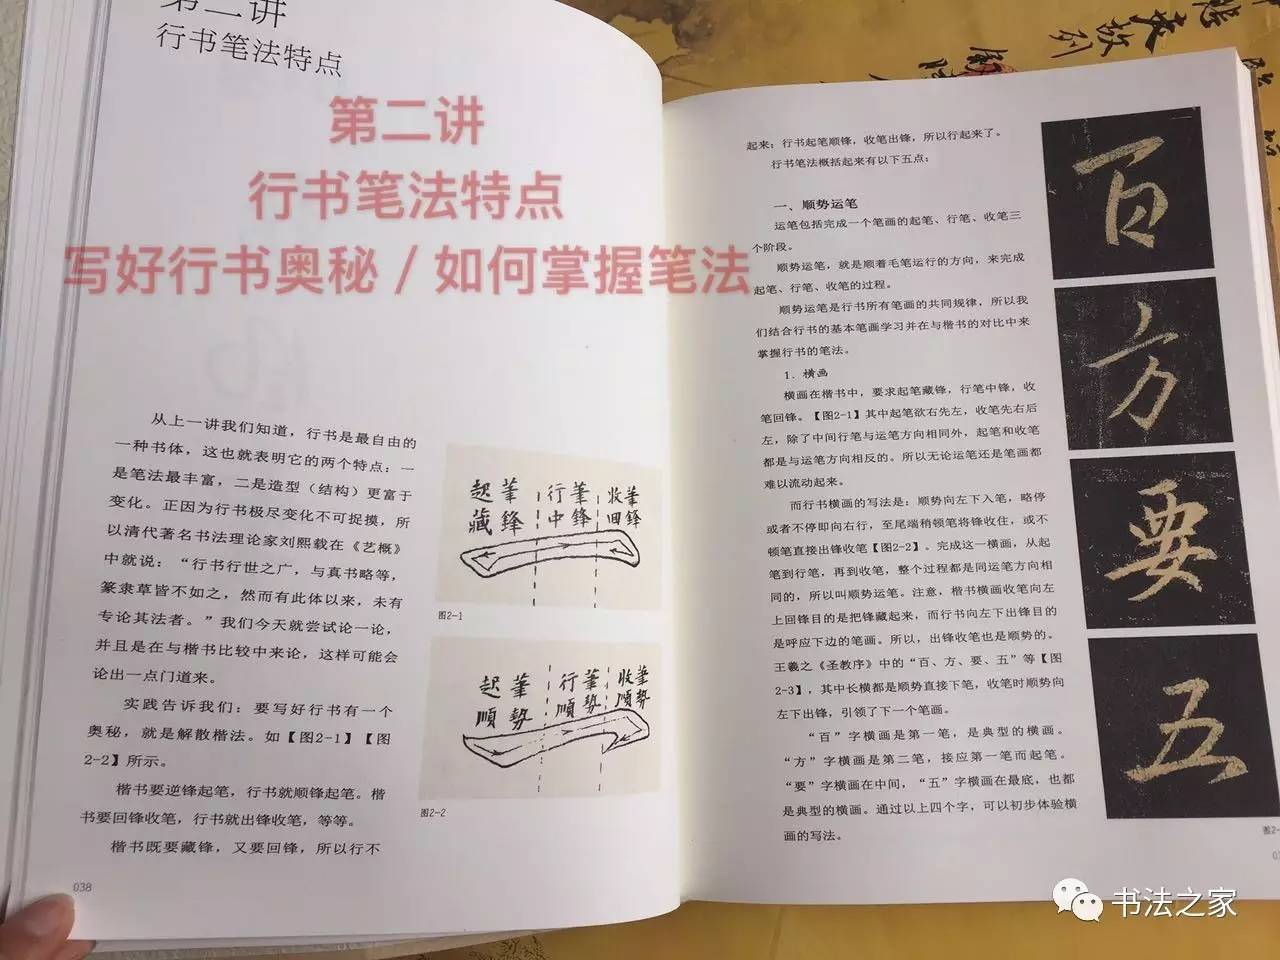 第二讲
行书笔法特点
第二讲
行书笔法特点
写好行书奥秘/如何掌握笔法
从上一讲我们知道，行书是最自由的
一种书体，这也就表明它的两个特点：一
是笔法最丰富，二是造型（结构）更富于
变化。正因为行书极尽变化不可捉摸，所
以清代著名书法理论家刘熙载在《艺概》
中就说：“行书行世之广，与真书略等，
篆隶草皆不如之，然而有此体以来，未有
专论其法者。”我们今天就尝试论一论，
并且是在与楷书比较中来论，这样可能会
论出一点门道来。
实践告诉我们：要写好行书有一个
奥秘，就是解散楷法。如【图2-1】【图
2-2】所示。
楷书要逆锋起笔，行书就顺锋起笔。楷
书要回锋收笔，行书就出锋收笔，等等。
楷书既要藏锋，又要回锋，所以行不
038
起筆 行筆 收筆
藏鋒 中鋒 回鋒
图2-1
起筆 行筆 收筆
順勢 順勢 順勢
图2-2
起来；行书起笔顺锋，收笔出锋，所以行起来了。
行书笔法概括起来有以下五点：
一、顺势运笔
运笔包括完成一个笔画的起笔、行笔、收笔三
个阶段。
顺势运笔，就是顺着毛笔运行的方向，来完成
起笔、行笔、收笔的过程。
顺势运笔是行书所有笔画的共同规律，所以我
们结合行书的基本笔画学习并在与楷书的对比中来
掌握行书的笔法。
1．横画
横画在楷书中，要求起笔藏锋，行笔中锋，收
笔回锋。【图2-1】其中起笔欲右先左，收笔先右后
左，除了中间行笔与运笔方向相同外，起笔和收笔
都是与运笔方向相反的。所以无论运笔还是笔画都
难以流动起来。
而行书横画的写法是：顺势向左下入笔，略停
或者不停即向右行，至尾端稍顿笔将锋收住，或不
顿笔直接出锋收笔【图2-2】。完成这一横画，从起
笔到行笔，再到收笔，整个过程都是同运笔方向相
同的，所以叫顺势运笔。注意，楷书横画收笔向左
上回锋目的是把锋藏起来，而行书向左下出锋目的
是呼应下边的笔画。所以，出锋收笔也是顺势的。
王羲之《圣教序》中的“百、方、要、五”等【图
2-3】，其中长横都是顺势直接下笔，收笔时顺势向
左下出锋，引领了下一个笔画。
“百”字横画是第一笔，是典型的横画。
“方”字横画是第二笔，接应第一笔而起笔。
“要”字横画在中间，“五”字横画在最底，也都
是典型的横画。通过以上四个字，可以初步体验横
画的写法。
百
方
要
五
书法之家